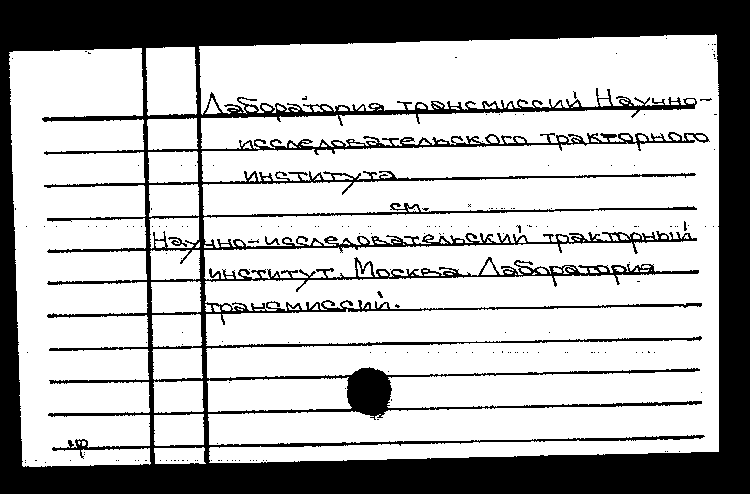 Лаборатория трансмиссий Научно-
исследовательского тракторного
института
см.
Научно-исследовательский тракторный
институт. Москва. Лаборатория
трансмиссий.